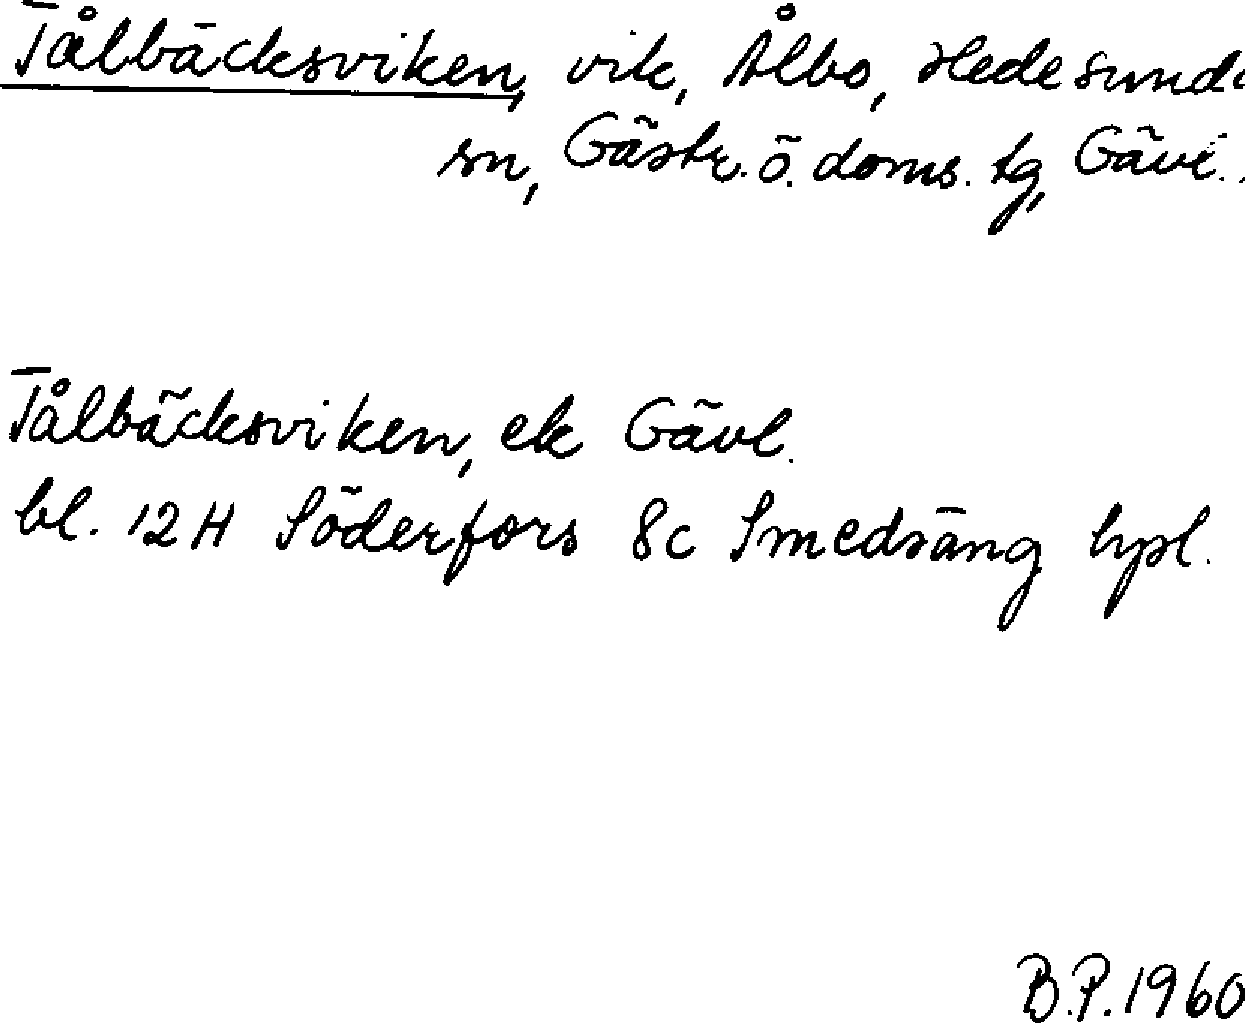 Tålbäcksviken, vik, Ålbo, Hedesunda
sn, Gästr. ö. doms. tg, Gävl.
Tålbäcksviken, ek Gävl.
bl. 12 H Söderfors 8c Smedsäng hpl.
B.P. 1960